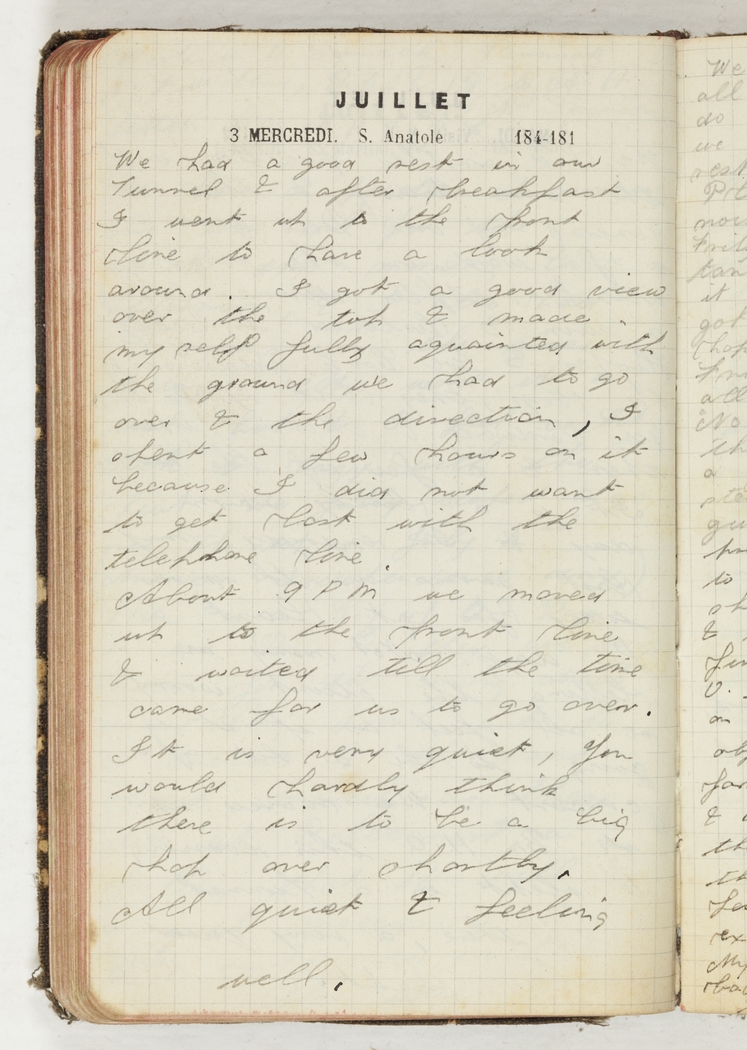 JUILLET
3 MERCREDI. S. Anatole 184-181
We had a good rest in our
Tunnel & after breakfast
I went up to the front
line to have a look
around. I got a good view
over the top & made
my self fully aquainted with
the ground we had to go
over & the direction, I
spent a few hours on it
because I did not want
to get lost with the
telephone line.
About 9 P M we moved
up to the front line
& waited till the time
came for us to go over.
It is very quiet, you
would hardly think
there is to be a big
hop over shortly.
All quiet & feeling
well.
We
all
do
we
rest
nois
Fritz
it
got
hop
all
No
th
a
to
&
on
for
&
th
th
My